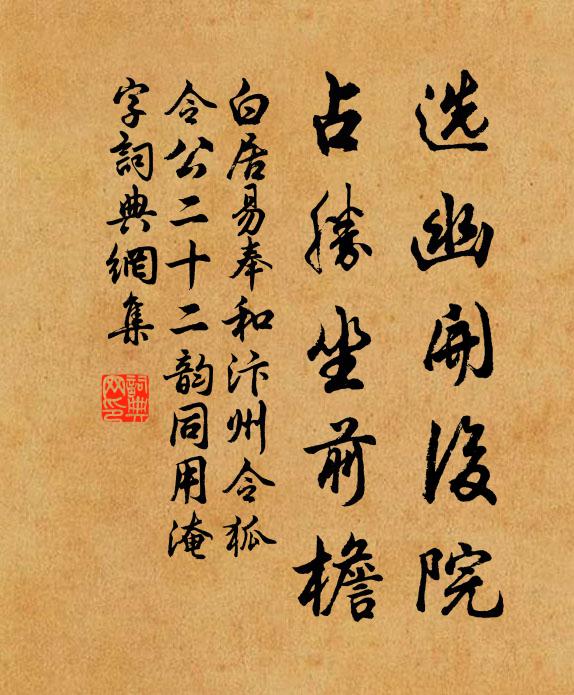 选幽开後院
占勝坐前檐
白居易奉和汴州令狐
令公二十二韵同用淹
字詞典網集
詞典网印